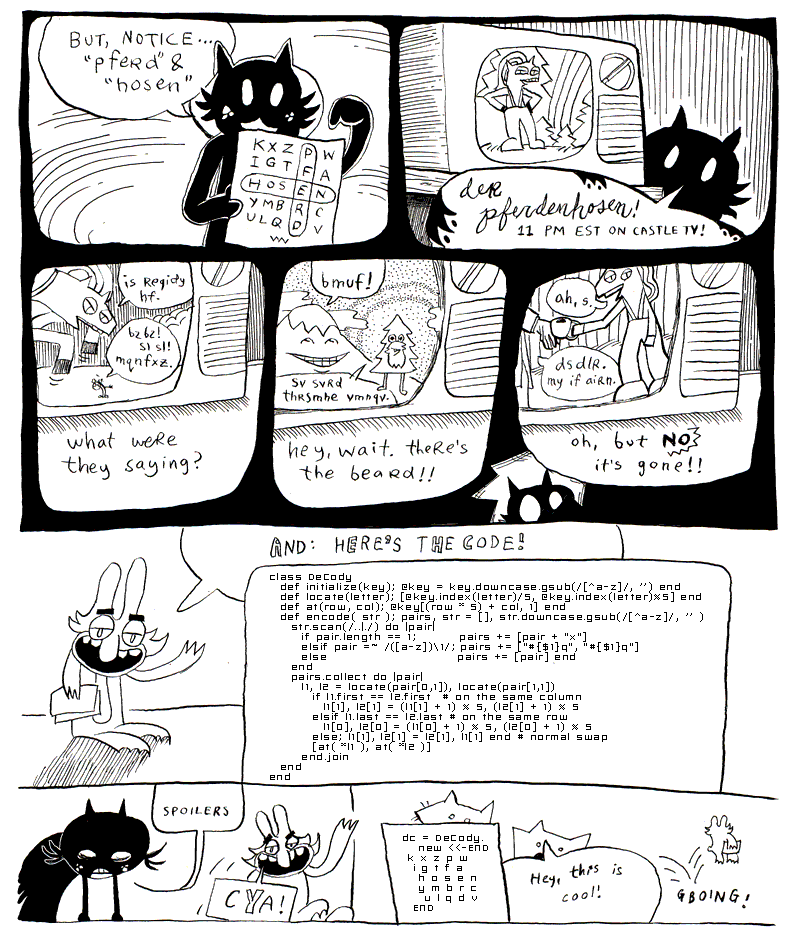 BUT, NOTICE...
"pferd" &
"hosen"
KXZPW
IGTFA
HOSEN
YMBRC
ULQDV
der
pferdenhosen!
11 PM EST ON CASTLE TV!
is Regidy
hf.
bzbz!
sl sl!
mqnfxz.
what were
they saying?
bmuf!
sv svrd
thrsmhe vmnqv.
hey, wait. there's
the beard!!
ah, s.
dsdlr.
my if airn.
oh, but NO
it's gone!!
AND: HERE'S THE CODE!
class DeCody
def initialize(key); @key = key.downcase.gsub(/[^a-z]/, '') end
def locate(letter); [@key.index(letter)/5, @key.index(letter)%5] end
def at(row, col); @key[(row * 5) + col, 1] end
def encode( str ); pairs, str = [], str.downcase.gsub(/[^a-z]/, '' )
str.scan(/..|./) do |pair|
if pair.length == 1; pairs += [pair + "x"]
elsif pair =~ /([a-z])\1/; pairs += ["#{$1}q", "#{$1}q"]
else pairs += [pair] end
end
pairs.collect do |pair|
l1, l2 = locate(pair[0,1]), locate(pair[1,1])
if l1.first == l2.first # on the same column
l1[1], l2[1] = (l1[1] + 1) % 5, (l2[1] + 1) % 5
elsif l1.last == l2.last # on the same row
l1[0], l2[0] = (l1[0] + 1) % 5, (l2[0] + 1) % 5
else; l1[1], l2[1] = l2[1], l1[1] end # normal swap
[at( *l1 ), at( *l2 )]
end.join
end
end
SPOILERS
CYA!
dc = DeCody.
new <<-END
k x z p w
i g t f a
h o s e n
y m b r c
u l q d v
END
Hey, this is
cool!
GBOING!